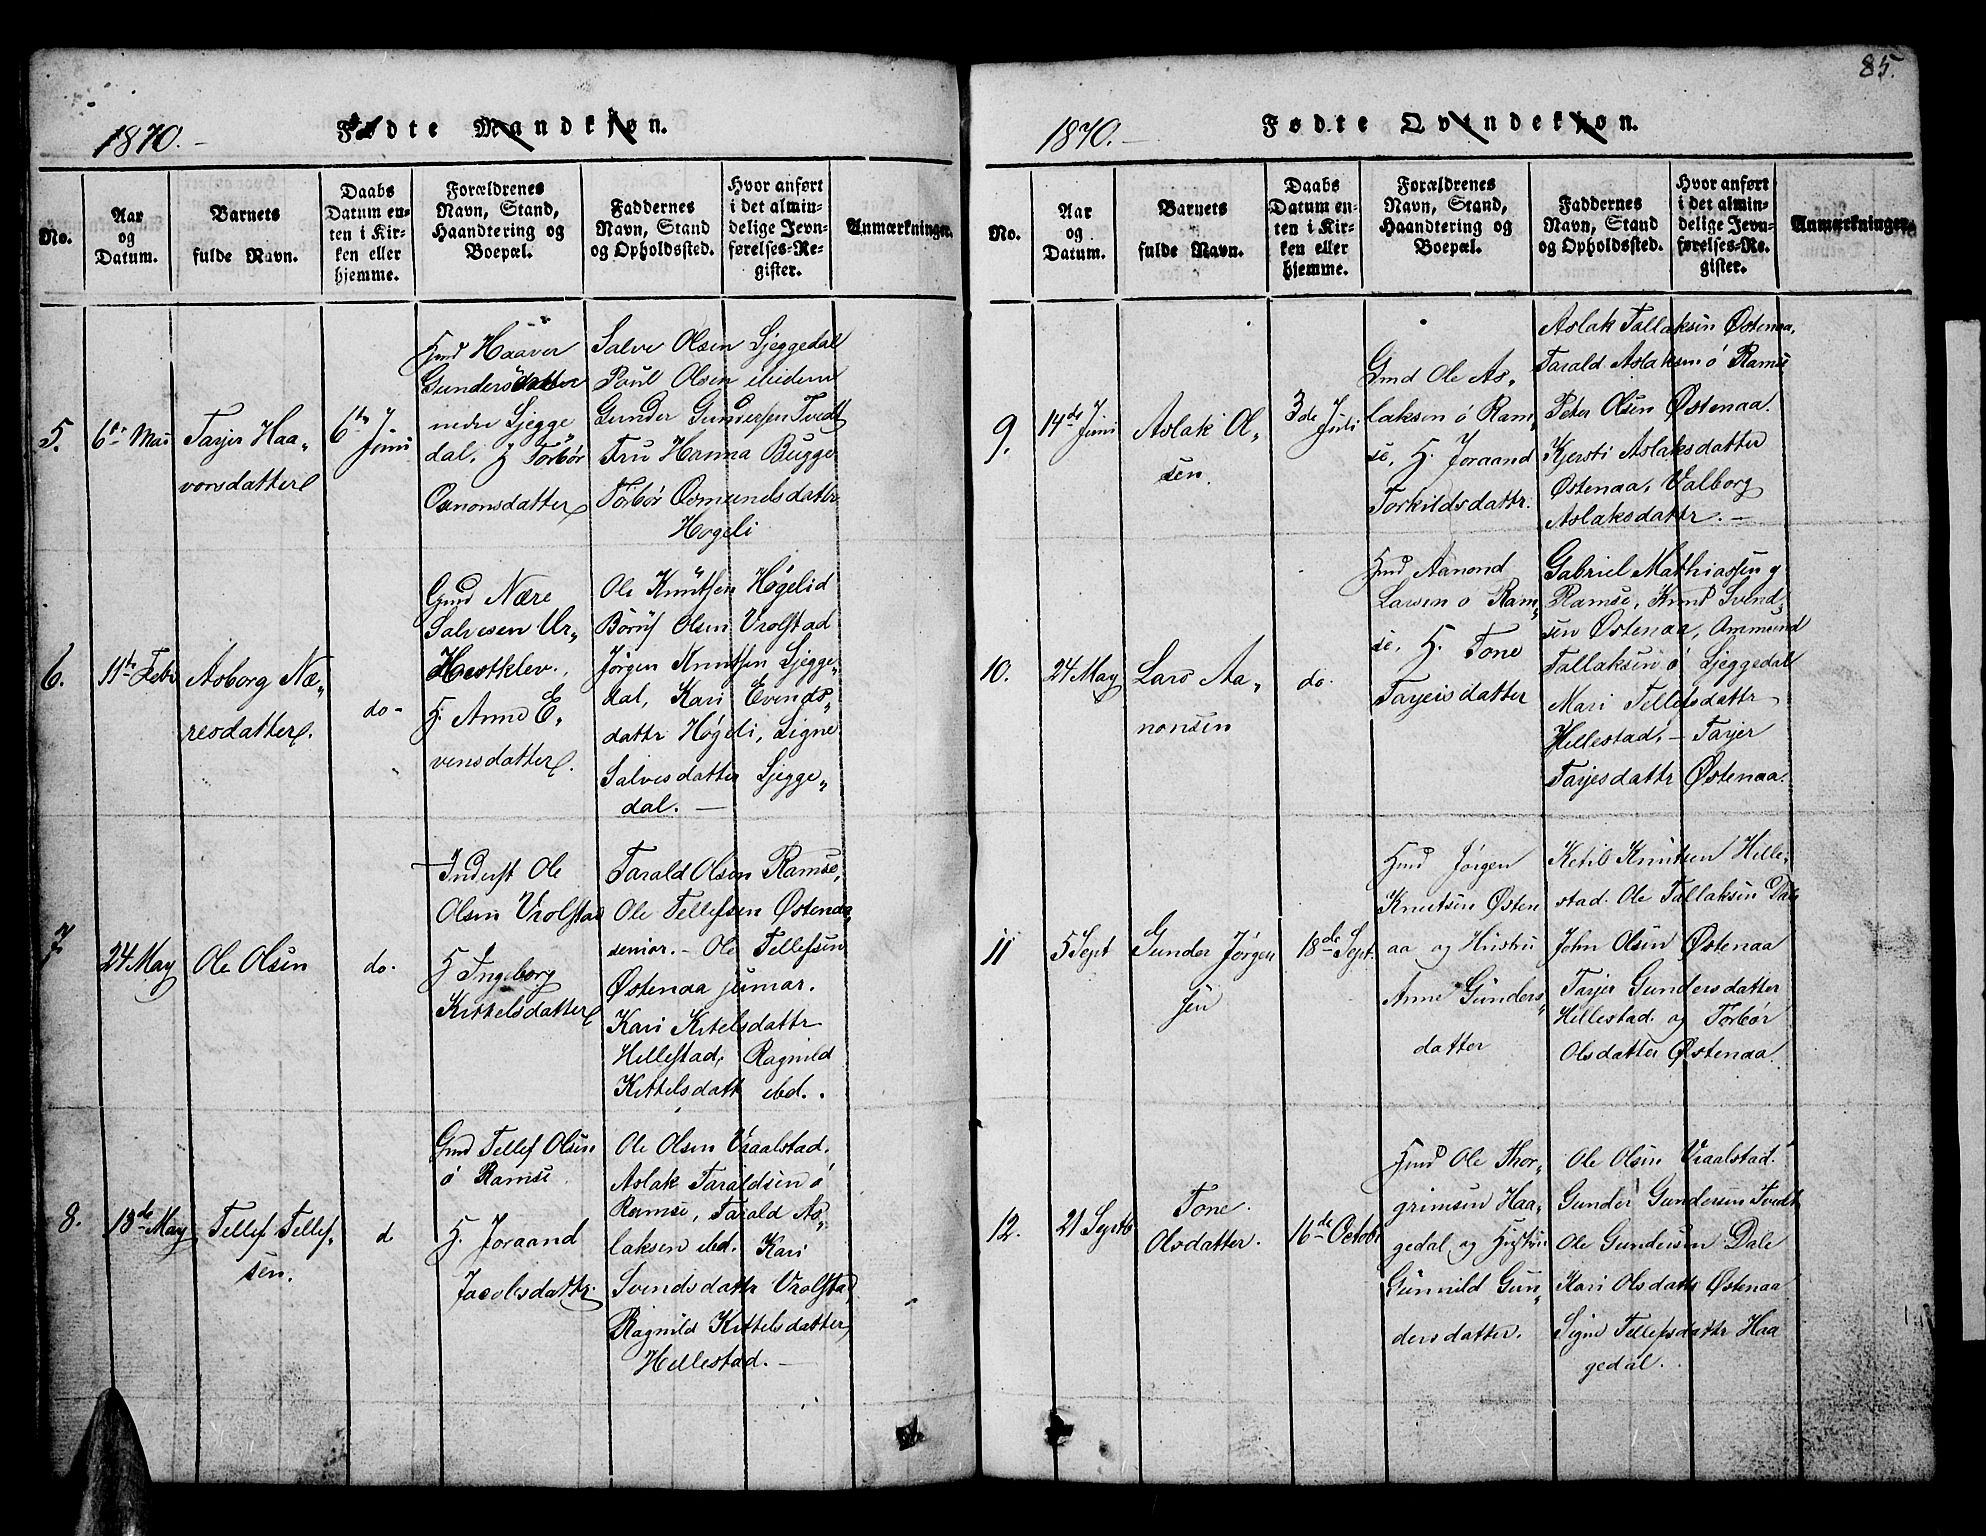 85.
1870.-
Fødte Mandkjøn.
No.
Aar
og
Datum.
Barnets
fulde Navn.
Daabs
Datum en-
ten i Kir-
ken eller
hjemme.
Forældrenes
Navn, Stand,
Haandtering og
Boepæl.
Faddernes
Navn, Stand
og Opholdssted.
Hvor anført
i det almin-
delige Jevn-
førelses-Re-
gister.
Anmærkninger.
5.
6te Mai
Tarjer Haa„
vorsdatter
6te
Juni
Hmd Haaver
Gundersdatter
nedre Ljegge
dal, H Torbór
Osmonsdatter
Salve Olsen Ljeggedal
Poul Olsen ibidem
Gunder Gundersen Tvedt
Fru Hanna Bugge
Torbór Osmundsdattr
Hogeli
6.
11te Febr
Asborg Næ„
resdatter.
do-
Gmd Nære
Salvesen Ur„
Hestklev.
H. Anne E„
vensdatter.
Ole Knutsen Høgelid
Börüf Olsen Vrolstad
Jörgen Knutsen Ljegge„
dal, Kari Evends„
dattr Høgeli, Signe
Salvesdatter Ljegge„
dal. —
7
24 May
Ole Olsin
do.
Inderst Ole
Olsen Vrolstad
H Ingeborg
Kittelsdatter
Tarald Olsen Ramse,
Ole Tellefsen Østenaa
senior. - Ole Tellefsen
Østenaa junior.
Kari Kitelsdattr
Hillestad, Ragnild
Kittelsdatt ibd..
8.
18de May
Tellef Tellef„
sen.
d
Gmd Tellef Olsen
ó Ramse
H. Joraand
Jacobsdattr.
Ole Olsen Vraalstad.
Aslak Taraldsen ó
Ramse, Tarald As„
laksen ibd. Kari
Svendsdattr Vrolstad,
Ragnild Kittelsdatter
Hillestad. —
1870.—
Fødte Qvindekjøn.
No.
Aar
og
Datum.
Barnets
fulde Navn.
Daabs
Datum en-
ten i Kir-
ken eller
hjemme.
Forældrenes
Navn, Stand,
Haandtering og
Boepæl.
Faddernes
Navn, Stand
og Opholdssted.
Hvor anført
i det almin-
delige Jevn-
førelses-Re-
gister.
Anmærkninger
9.
14de Juni
Aslak Ol„
sen.
3de
Juli
Gmd Ole As„
laksen ó Ram„
se, H. Joraand
Torkildsdattr.
Aslak Tallaksen Østenaa,
Tarald Aslaksen ó Ramse
Peter Olsen Østenaa.
Kjersti Aslaksdatter
Østenaa, Valborg
Aslaksdattr. —
10.
24 May
Lars Aa„
nonsen
do.
Hmd Aanond
Larsen ó Ram„
se, H. Tone
Tarjeisdatter
Gabriel Mathiassen y
Ramse, Knut Svend„
sen Østenaa, Ammund
Tallaksen ó Ljeggedal
Mari Tellefsdattr
Hillestad, — Tarjer
Tarjesdattr Østenaa.
11
5 Sept
Gunder Jørgen
sen
18de Sept.
Hmd Jörgen
Knutsen Østen
aa og Hustru
Anne Gunders„
datter
Ketil Knutsen Hille„
stad. Ole Tallaksen Dale
John Olsen Østenaa
Tarjer Gundersdatter
Hillestad. og Torbór
Olsdatter Østenaa.
12.
21 Septb
Tone
Olsdatter.
16de Octobr
Hmd Ole Thor„
grimsen Haa„
gedal og Hustru
Gunnild Gun„
dersdatter.
Ole Olsen Vraalstad.
Gunder Gundersen Tvedt
Ole Gundersen Dale
Kari Olsdattr Østenaa
Signe Tellefsdattr Haa
gedal.